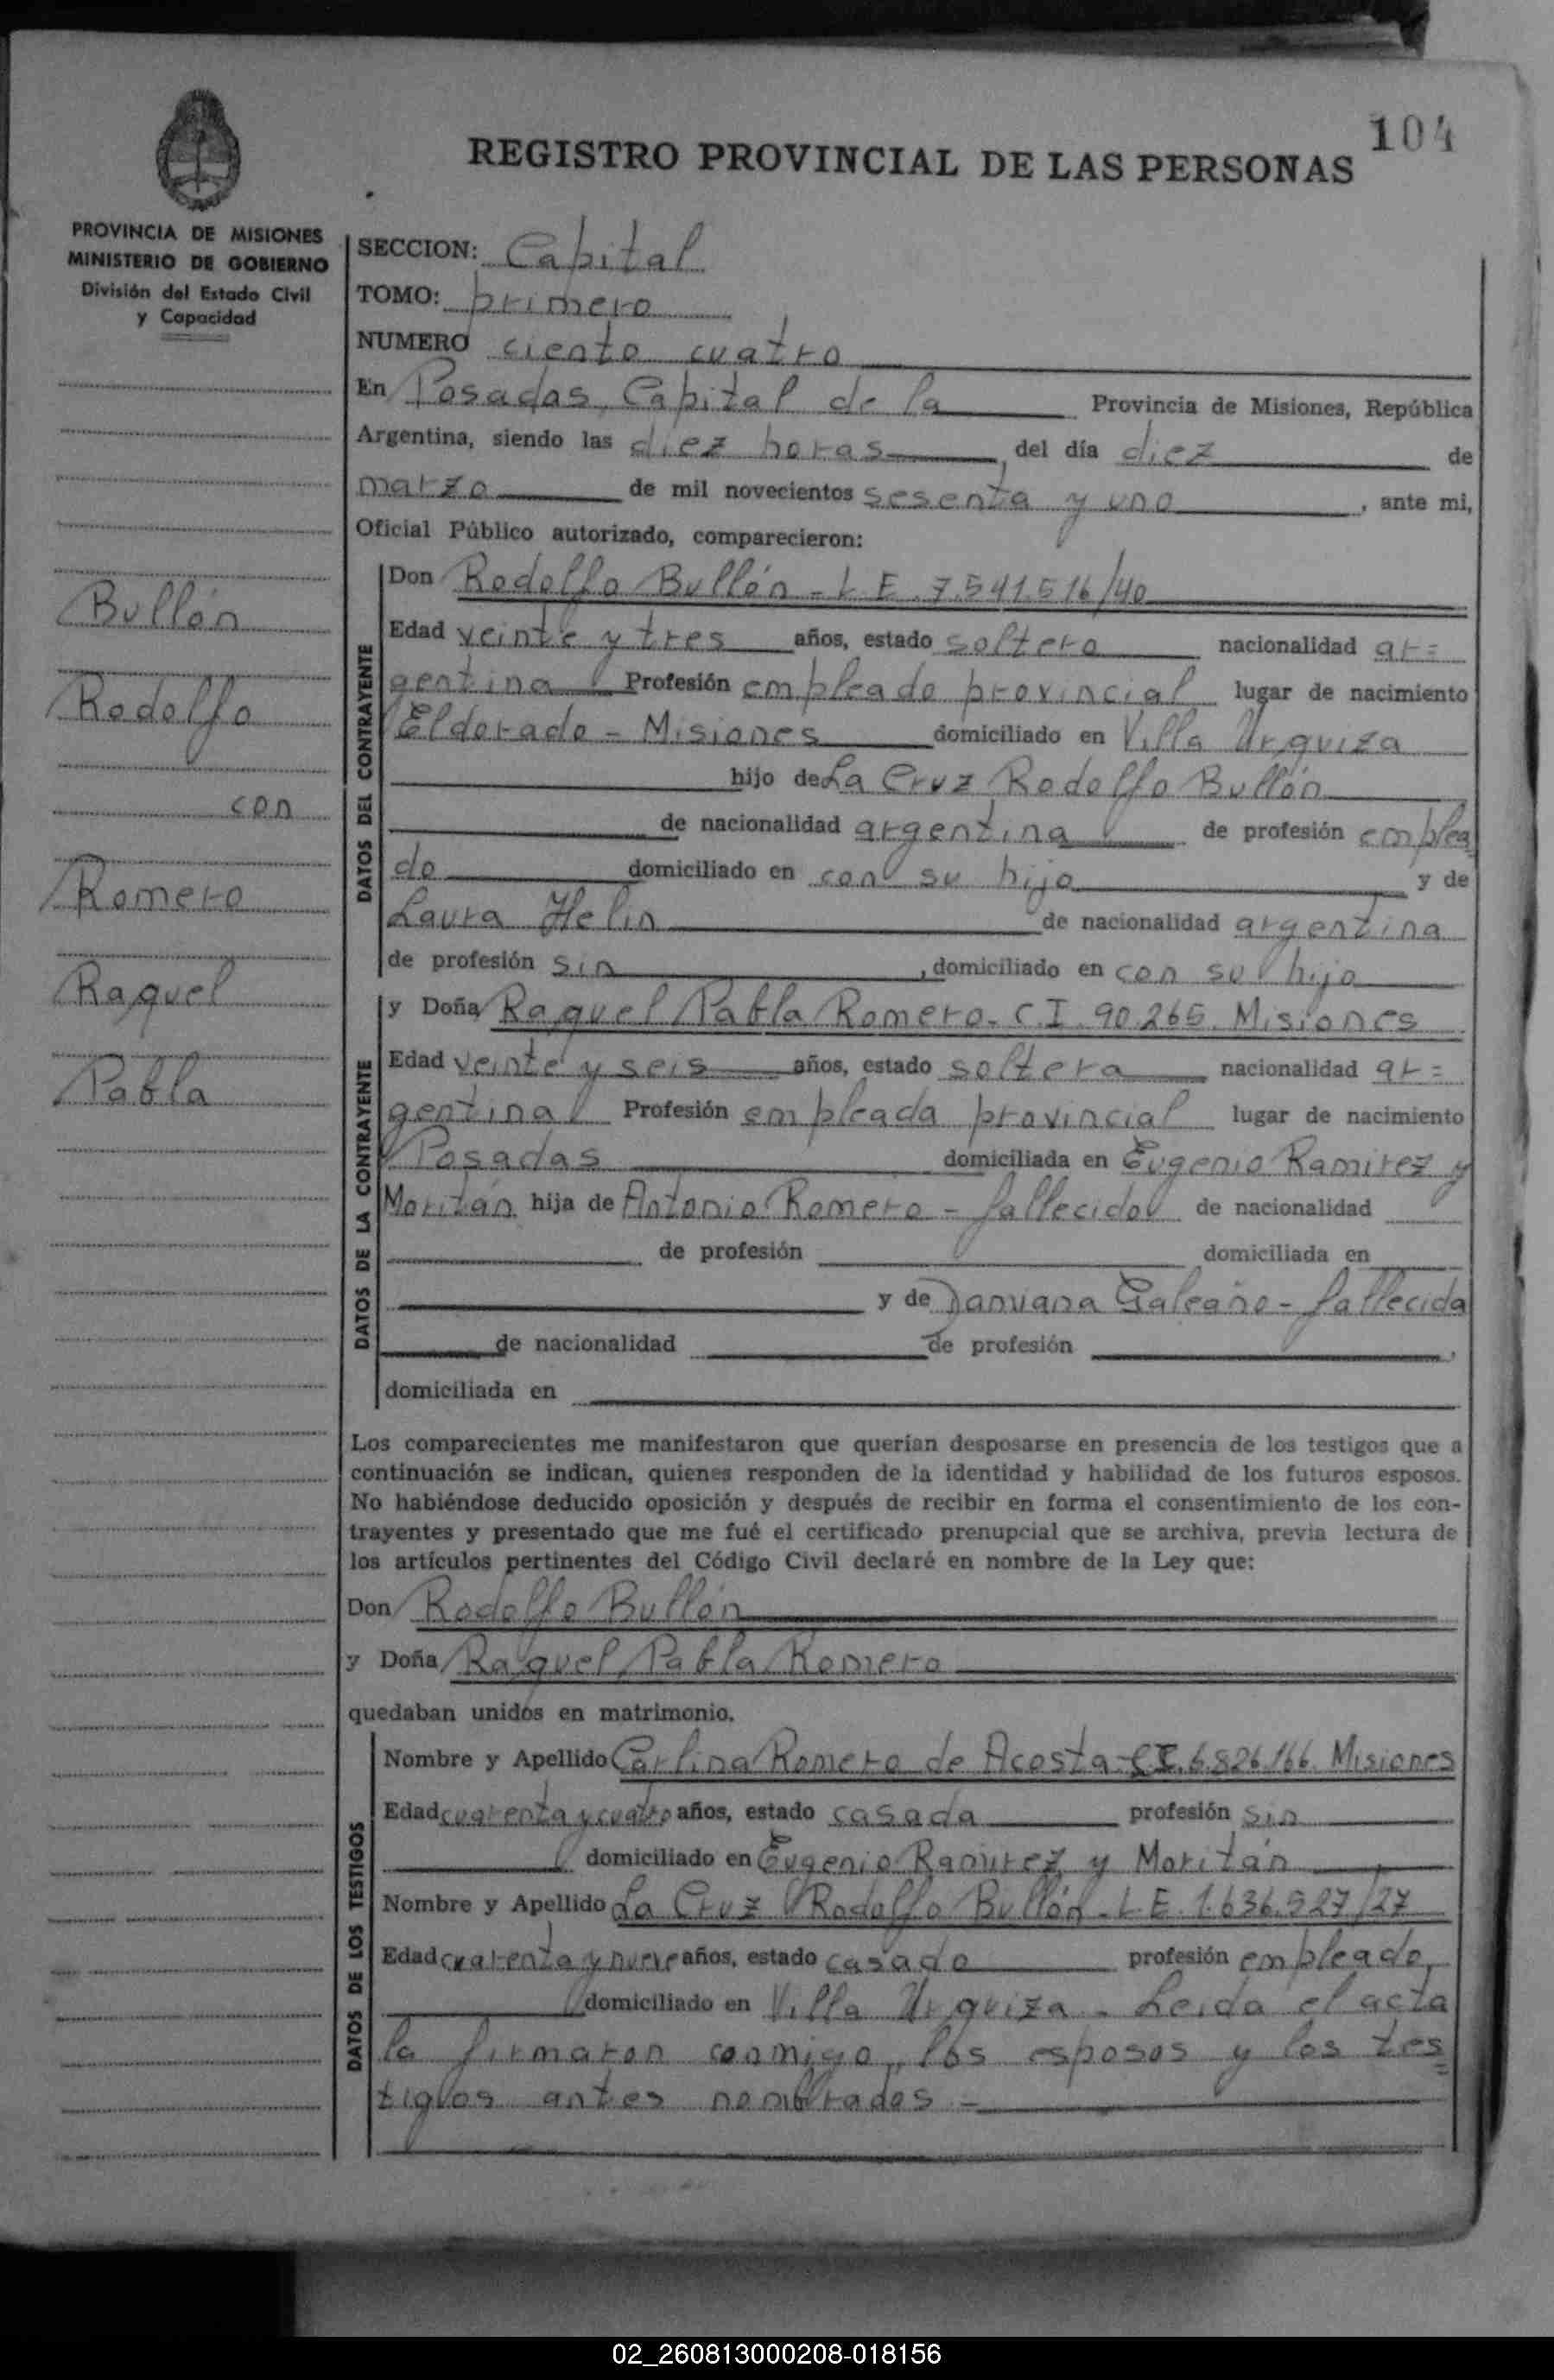 104
REGISTRO PROVINCIAL DE LAS PERSONAS
PROVINCIA DE MISIONES
MINISTERIO DE GOBIERNO
División del Estado Civil
y Capacidad
Bullón
Rodolfo
con
Romero
Raquel
Pabla
SECCION: Capital
TOMO: primero
NUMERO ciento cuatro
En Posadas, Capital de la Provincia de Misiones, República
Argentina, siendo las diez horas, del día diez de
marzo de mil novecientos sesenta y uno, ante mi,
Oficial Público autorizado, comparecieron:
DATOS DEL CONTRAYENTE
Don Rodolfo Bullón - L.E. 7.541.516/40
Edad veinte y tres años, estado soltero nacionalidad ar=
gentina Profesión empleado provincial lugar de nacimiento
Eldorado - Misiones domiciliado en Villa Urquiza
hijo de La Cruz Rodolfo Bullón
de nacionalidad argentina de profesión emplea
do domiciliado en con su hijo y de
Laura Helin de nacionalidad argentina
de profesión sin, domiciliado en con su hijo
DATOS DE LA CONTRAYENTE
y Doña Raquel Pabla Romero - C.I. 90.265. Misiones
Edad veinte y seis años, estado soltera nacionalidad ar=
gentina Profesión empleada provincial lugar de nacimiento
Posadas domiciliada en Eugenio Ramirez y
Moritán hija de Antonio Romero - fallecido de nacionalidad
de profesión domiciliada en
y de Januana Galeano - fallecida
de nacionalidad de profesión ,
domiciliada en
Los comparecientes me manifestaron que querían desposarse en presencia de los testigos que a
continuación se indican, quienes responden de la identidad y habilidad de los futuros esposos.
No habiéndose deducido oposición y después de recibir en forma el consentimiento de los con-
trayentes y presentado que me fué el certificado prenupcial que se archiva, previa lectura de
los artículos pertinentes del Código Civil declaré en nombre de la Ley que:
Don Rodolfo Bullón
y Doña Raquel Pabla Romero
quedaban unidos en matrimonio.
DATOS DE LOS TESTIGOS
Nombre y Apellido Carlina Romero de Acosta - C.I. 6.826.166. Misiones
Edad cuarenta y cuatro años, estado casada profesión sin
domiciliado en Eugenio Ramirez y Moritán
Nombre y Apellido La Cruz Rodolfo Bullón - L.E. 1.636.527/27
Edad cuarenta y nueve años, estado casado profesión empleado,
domiciliado en Villa Urquiza - Leida el acta
la firmaron conmigo, los esposos y los tes
tigos antes nombrados -
02_260813000208-018156